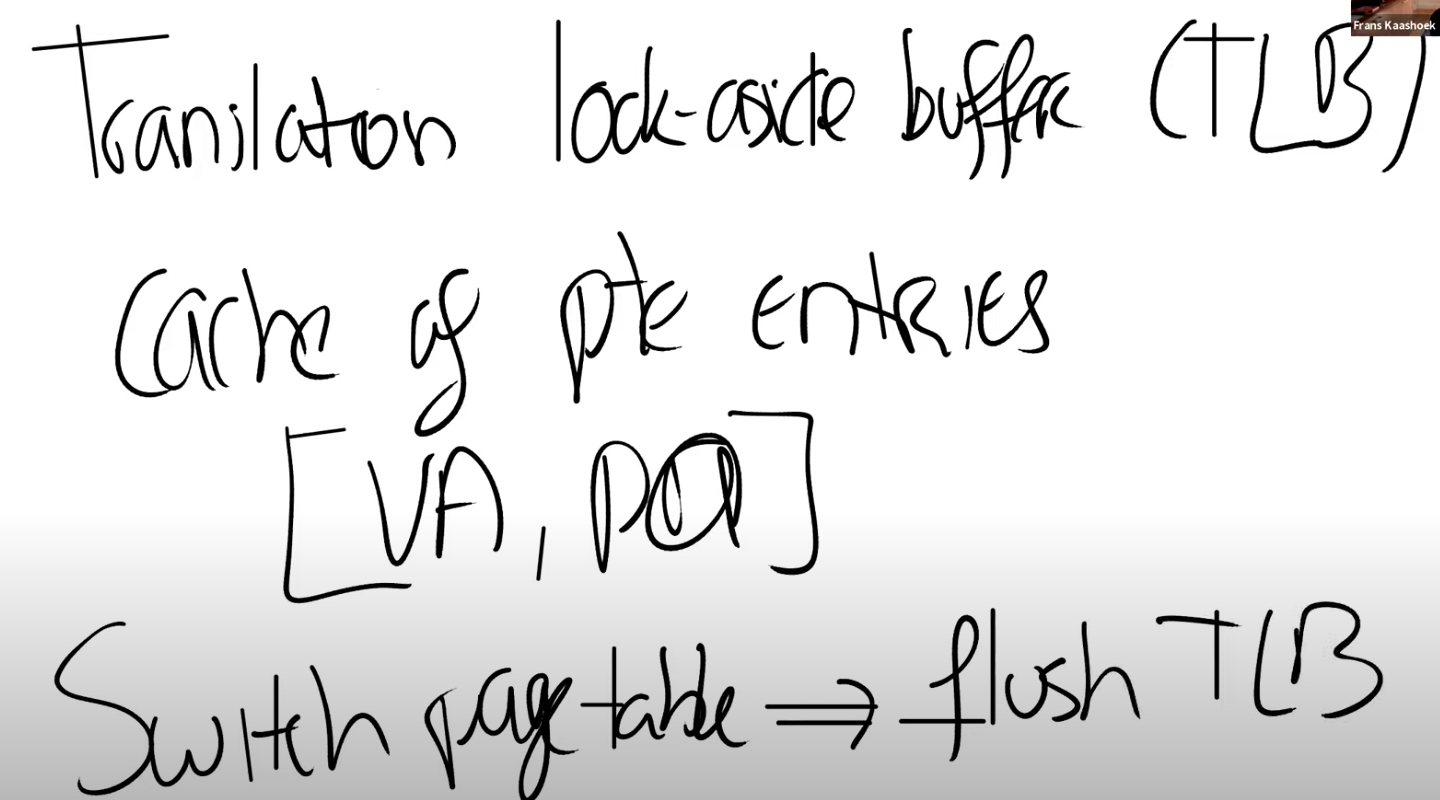 Frans Kaashoek
Translation look-aside buffer (TLB)
Cache of pte entries
[VA, PA]
Switch page table ⇒ flush TLB